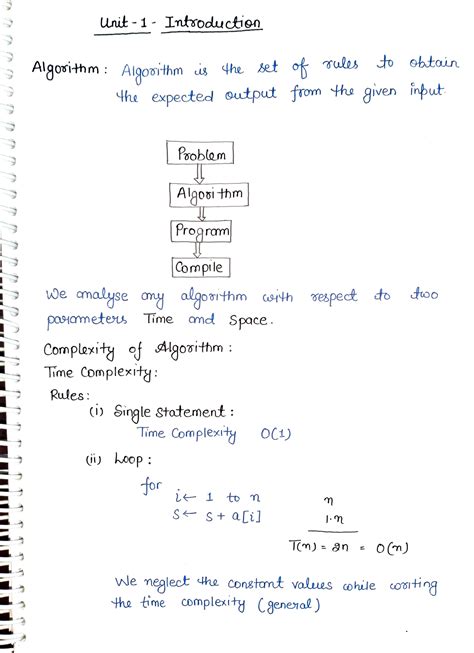 Unit - 1 - Introduction
Algorithm : Algorithm is the set of rules to obtain
the expected output from the given input
Problem
Algorithm
Program
Compile
We analyse any algorithm with respect to two
parameters Time and Space.
Complexity of Algorithm :
Time Complexity:
Rules:
(i) Single Statement :
Time Complexity O(1)
(ii) Loop :
for
i ← 1 to n n
s ← s + a[i] 1·n
T(n) = 2n = O(n)
We neglect the constant values while writing
the time complexity (general)